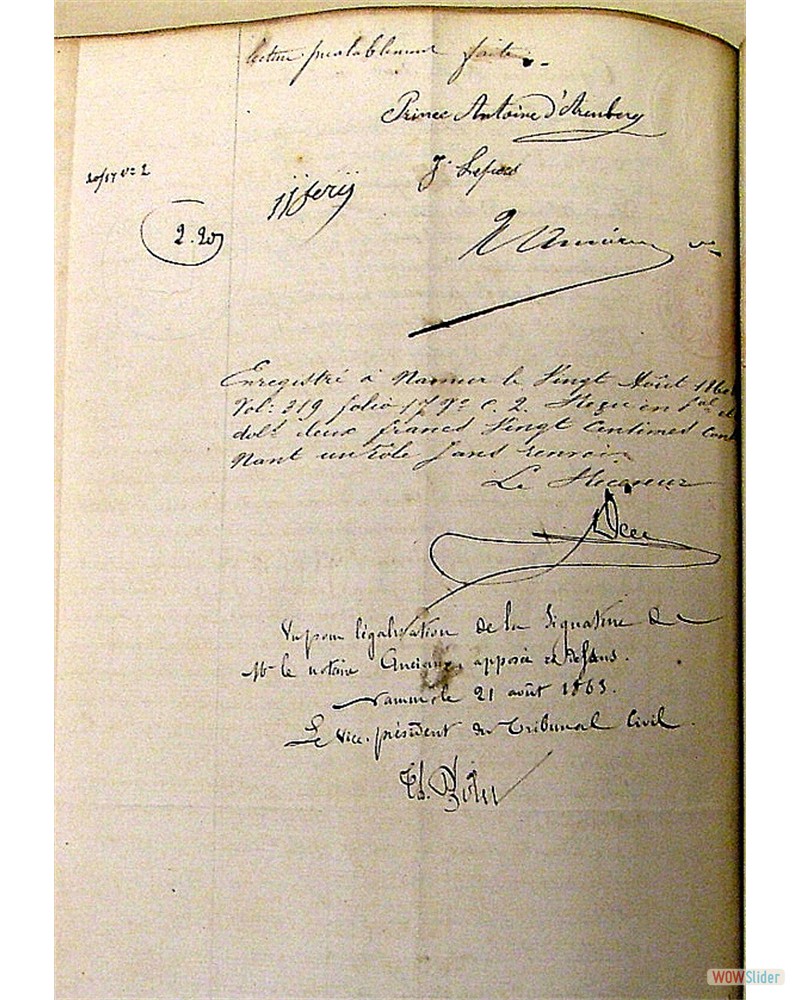 lecture préalablement faite. -
Prince Antoine d'Arenberg
20/17 Vo 2
2.20
Enregistré à Namur le Vingt Août
Vol: 319 folio 17 Vo c. 2. Reçu en
deux francs Vingt Centimes Cont
Nant un rôle sans renvoi
Le Receveur
Vu pour légalisation de la signature de
Mr le notaire Anciaux, apposée
Namur le 21 août 1863.
Le Vice-président du Tribunal Civil.
WOWSlider